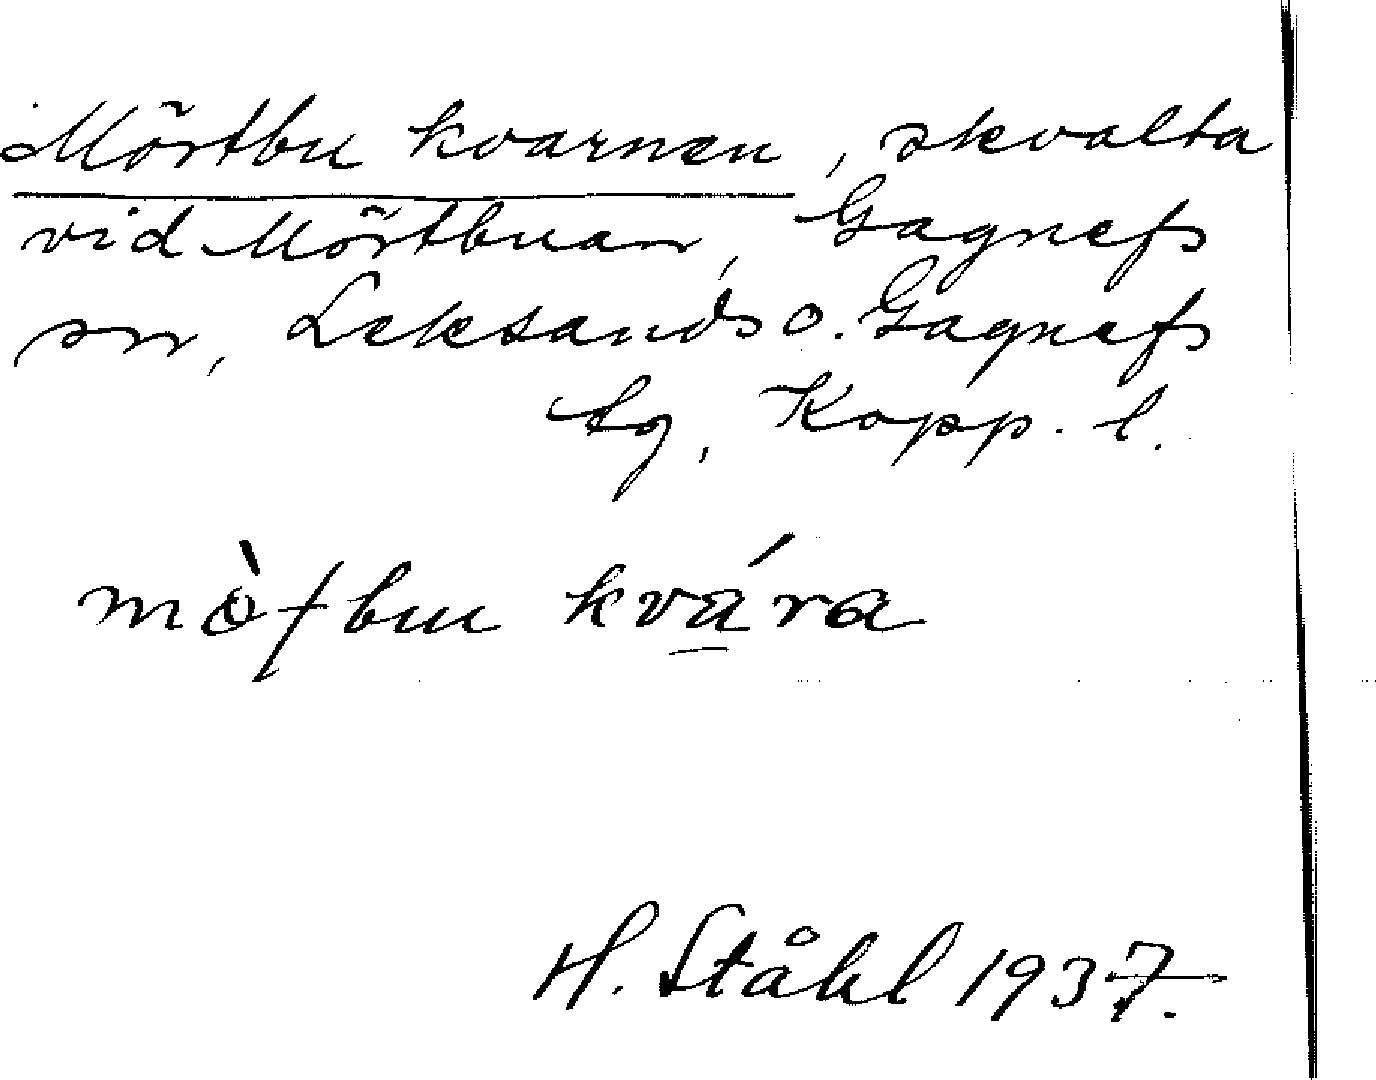 Mörtbu kvarnen, skvalta
vid Mörtbuan, Gagnefs
sn, Leksands o. Gagnefs
tg, Kopp. l.
kvára
H. Ståhl 1937.